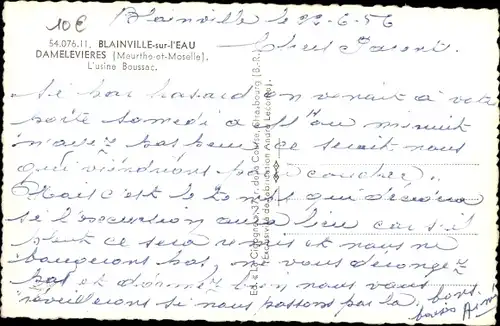 10€
Blainville le 22-6-56
54.076.11. BLAINVILLE-sur-l'EAU
DAMELEVIERES (Meurthe-et-Moselle).
L'usine Boussac.
Chers Parents
Si par hasard on venait à votre
porte samedi à 11h ou minuit
n'ayez pas peur ce serait nous
qui viendrions pour coucher.
Mais c'est le temps qui décidera
si l'excursion aura lieu car s'il
pleut ce sera remis et nous ne
bougerons pas, ne vous dérangez
pas et dormez bien nous vous
réveillerons si nous passons par là. bons
baisers